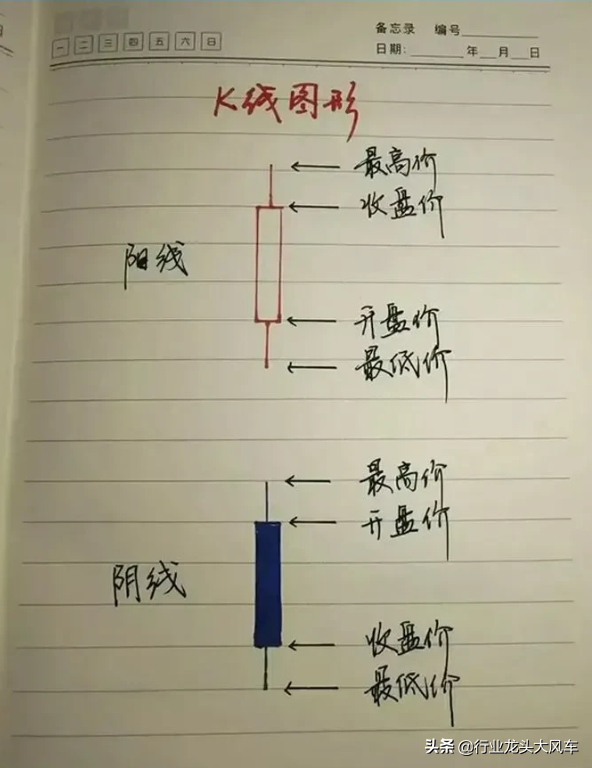 备忘录 编号
一 二 三 四 五 六 日
日期: 年 月 日
K线图形
最高价
收盘价
阳线
开盘价
最低价
最高价
开盘价
阴线
收盘价
最低价
头条 @行业龙头大风车